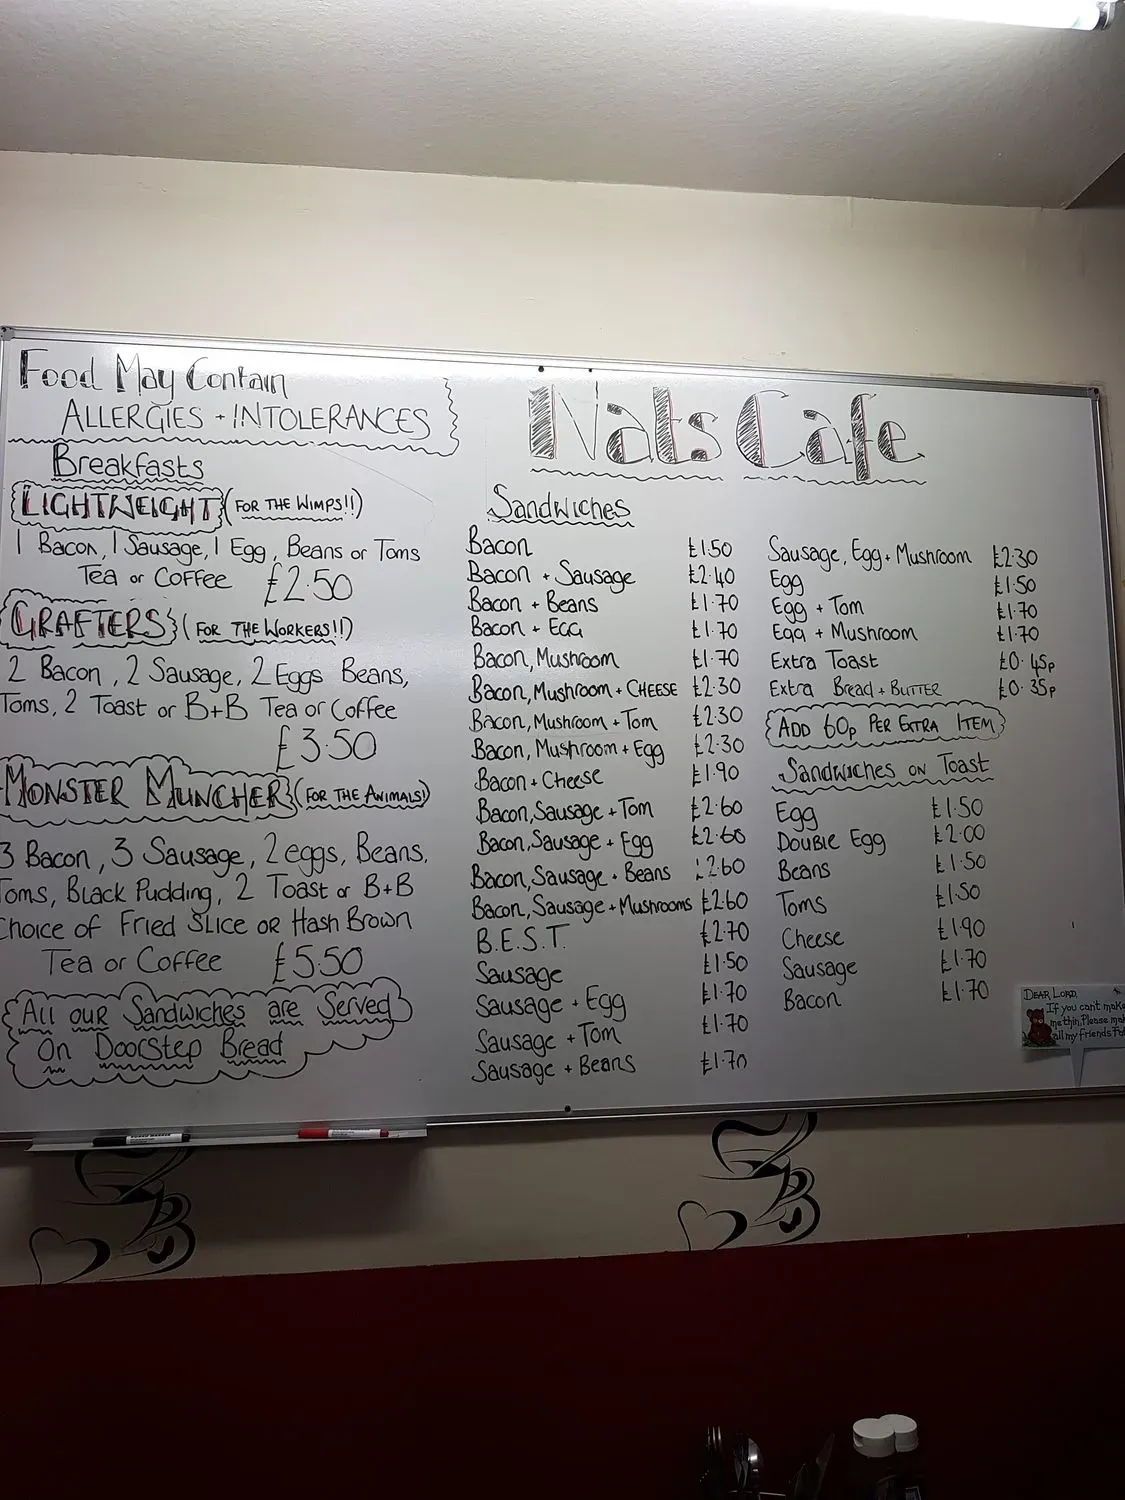 Food May Contain
ALLERGIES + INTOLERANCES
Breakfasts
LIGHTWEIGHT (FOR THE WIMPS!!)
1 Bacon, 1 Sausage, 1 Egg, Beans or Toms
Tea or Coffee £2.50
GRAFTERS (FOR THE WORKERS!!)
2 Bacon, 2 Sausage, 2 Eggs Beans,
Toms, 2 Toast or B+B Tea or Coffee
£3.50
MONSTER MUNCHER (FOR THE ANIMALS!)
3 Bacon, 3 Sausage, 2 eggs, Beans,
Toms, Black Pudding, 2 Toast or B+B
Choice of Fried Slice or Hash Brown
Tea or Coffee £5.50
All our Sandwiches are Served
On Doorstep Bread
Nats Cafe
Sandwiches
Bacon £1.50
Bacon + Sausage £2.40
Bacon + Beans £1.70
Bacon + EGG £1.70
Bacon, Mushroom £1.70
Bacon, Mushroom + CHEESE £2.30
Bacon, Mushroom + Tom £2.30
Bacon, Mushroom + Egg £2.30
Bacon + Cheese £1.90
Bacon, Sausage + Tom £2.60
Bacon, Sausage + Egg £2.60
Bacon, Sausage + Beans £2.60
Bacon, Sausage + Mushrooms £2.60
B.E.S.T. £2.70
Sausage £1.50
Sausage + Egg £1.70
Sausage + Tom £1.70
Sausage + Beans £1.70
Sausage, Egg + Mushroom £2.30
Egg £1.50
Egg + Tom £1.70
Egg + Mushroom £1.70
Extra Toast £0.45p
Extra Bread + BUTTER £0.35p
ADD 60p PER EXTRA ITEM
Sandwiches on Toast
Egg £1.50
Double Egg £2.00
Beans £1.50
Toms £1.50
Cheese £1.90
Sausage £1.70
Bacon £1.70
DEAR LORD
If you cant make
me thin, Please make
all my friends Fat